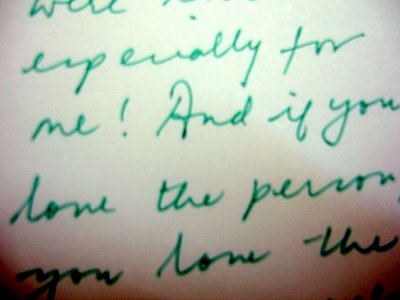 were
especially for
me! And if you
love the person,
you love the